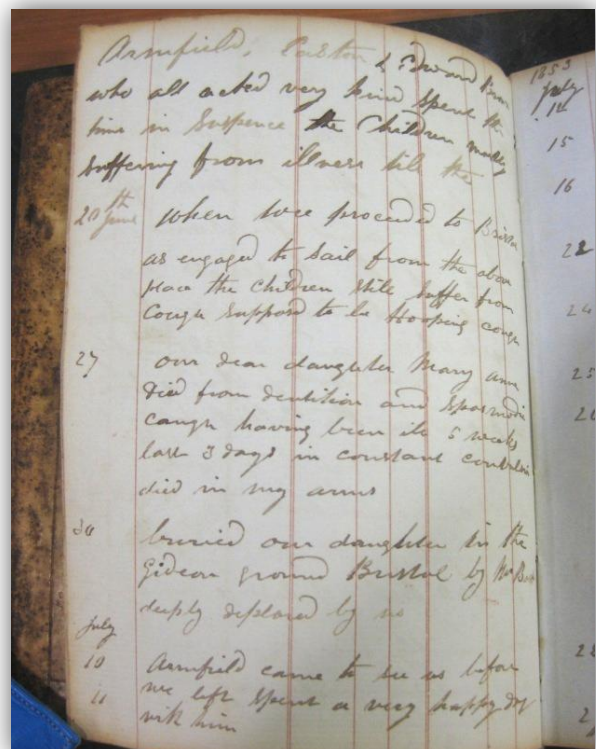 Armfield, Paxton & Edward Brown
who all acted very kind spent the
time in Suspence the Children mostly
Suffering from illness till the
20th June when wee proceeded to Bristol
as engaged to Sail from the above
place the Children still Suffer from
Cough Supposed to be Hooping cough
27 our dear daughter Mary Ann
Died from dentition and Spasmodic
cough having been ill 5 weeks
last 3 days in constant convulsion
died in my arms
30 buried our daughter in the
Gideon ground Bristol by Mr
deeply deplored by us
July
10 Armfield came to see us before
11 we left Spent a very happy day
with him
1853
July
12
15
16
22
24
25